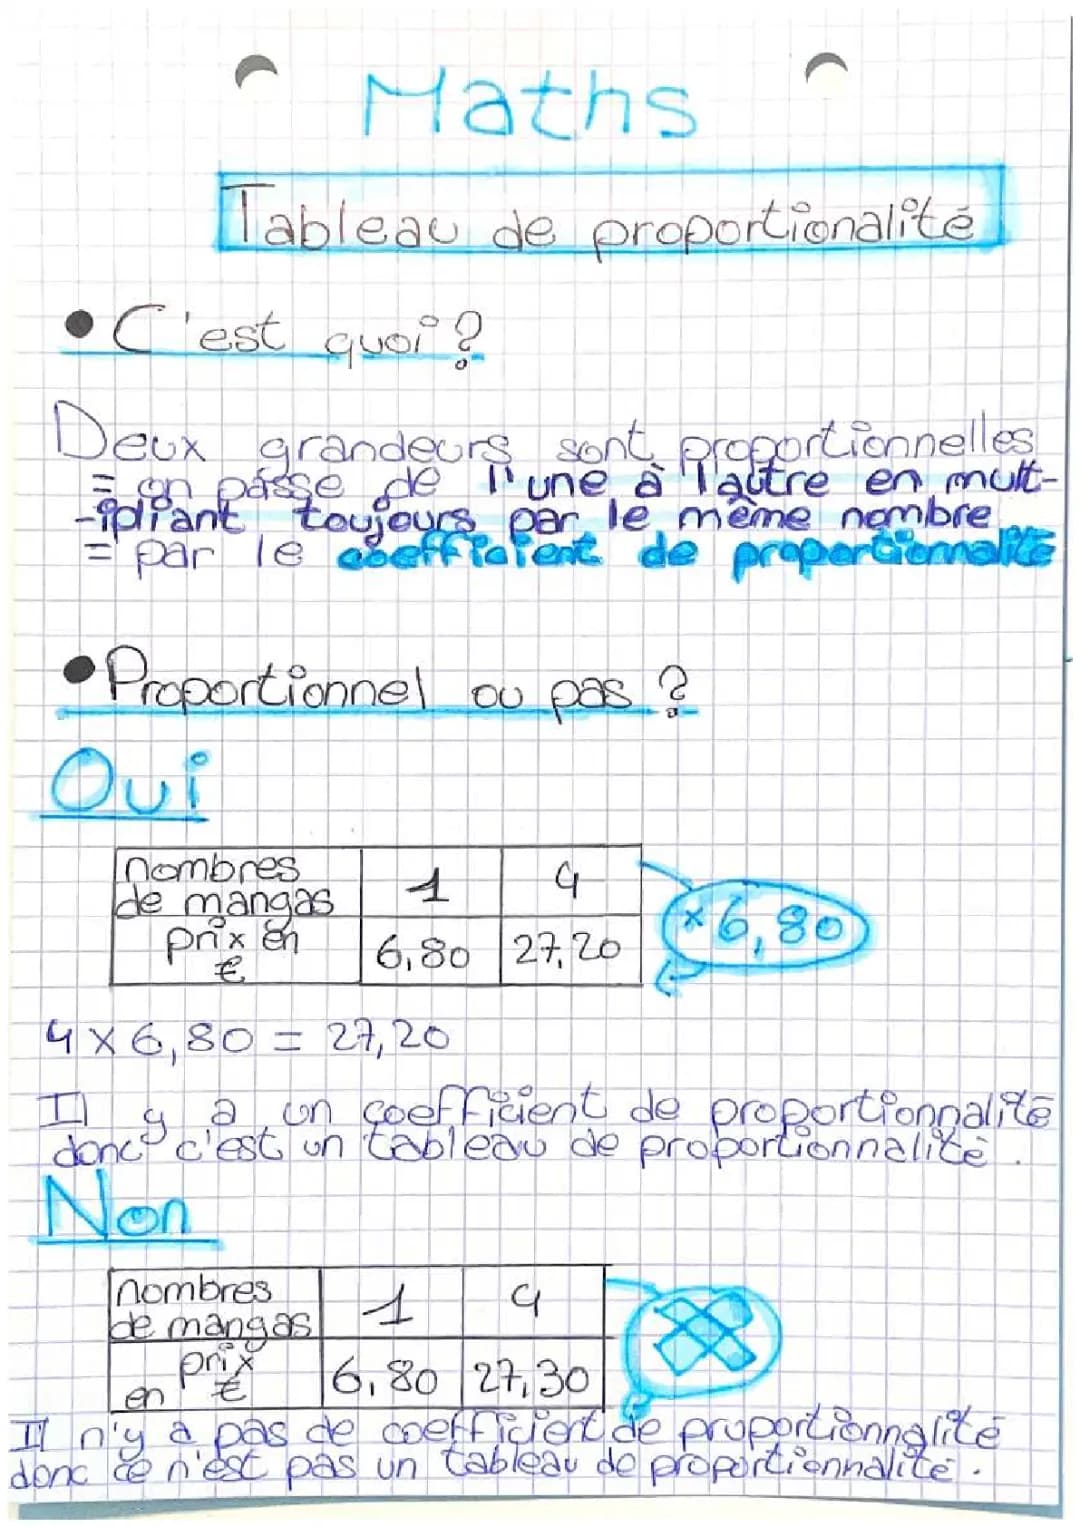 Maths
Tableau de proportionalité
• C'est quoi ?
Deux grandeurs sont proportionnelles
= on passe de l'une à l'autre en mult-
-ipliant toujours par le même nombre
= par le coefficient de proportionnalité
• Proportionnel ou pas ?
Oui
nombres
de mangas
1
4
prix en
€
6,80
27,20
× 6,80
4 × 6,80 = 27,20
Il y a un coefficient de proportionnalité
donc c'est un tableau de proportionnalité.
Non
nombres
de mangas
1
4
prix
en €
6,80
27,30
Il n'y a pas de coefficient de proportionnalité
donc ce n'est pas un tableau de proportionnalité.